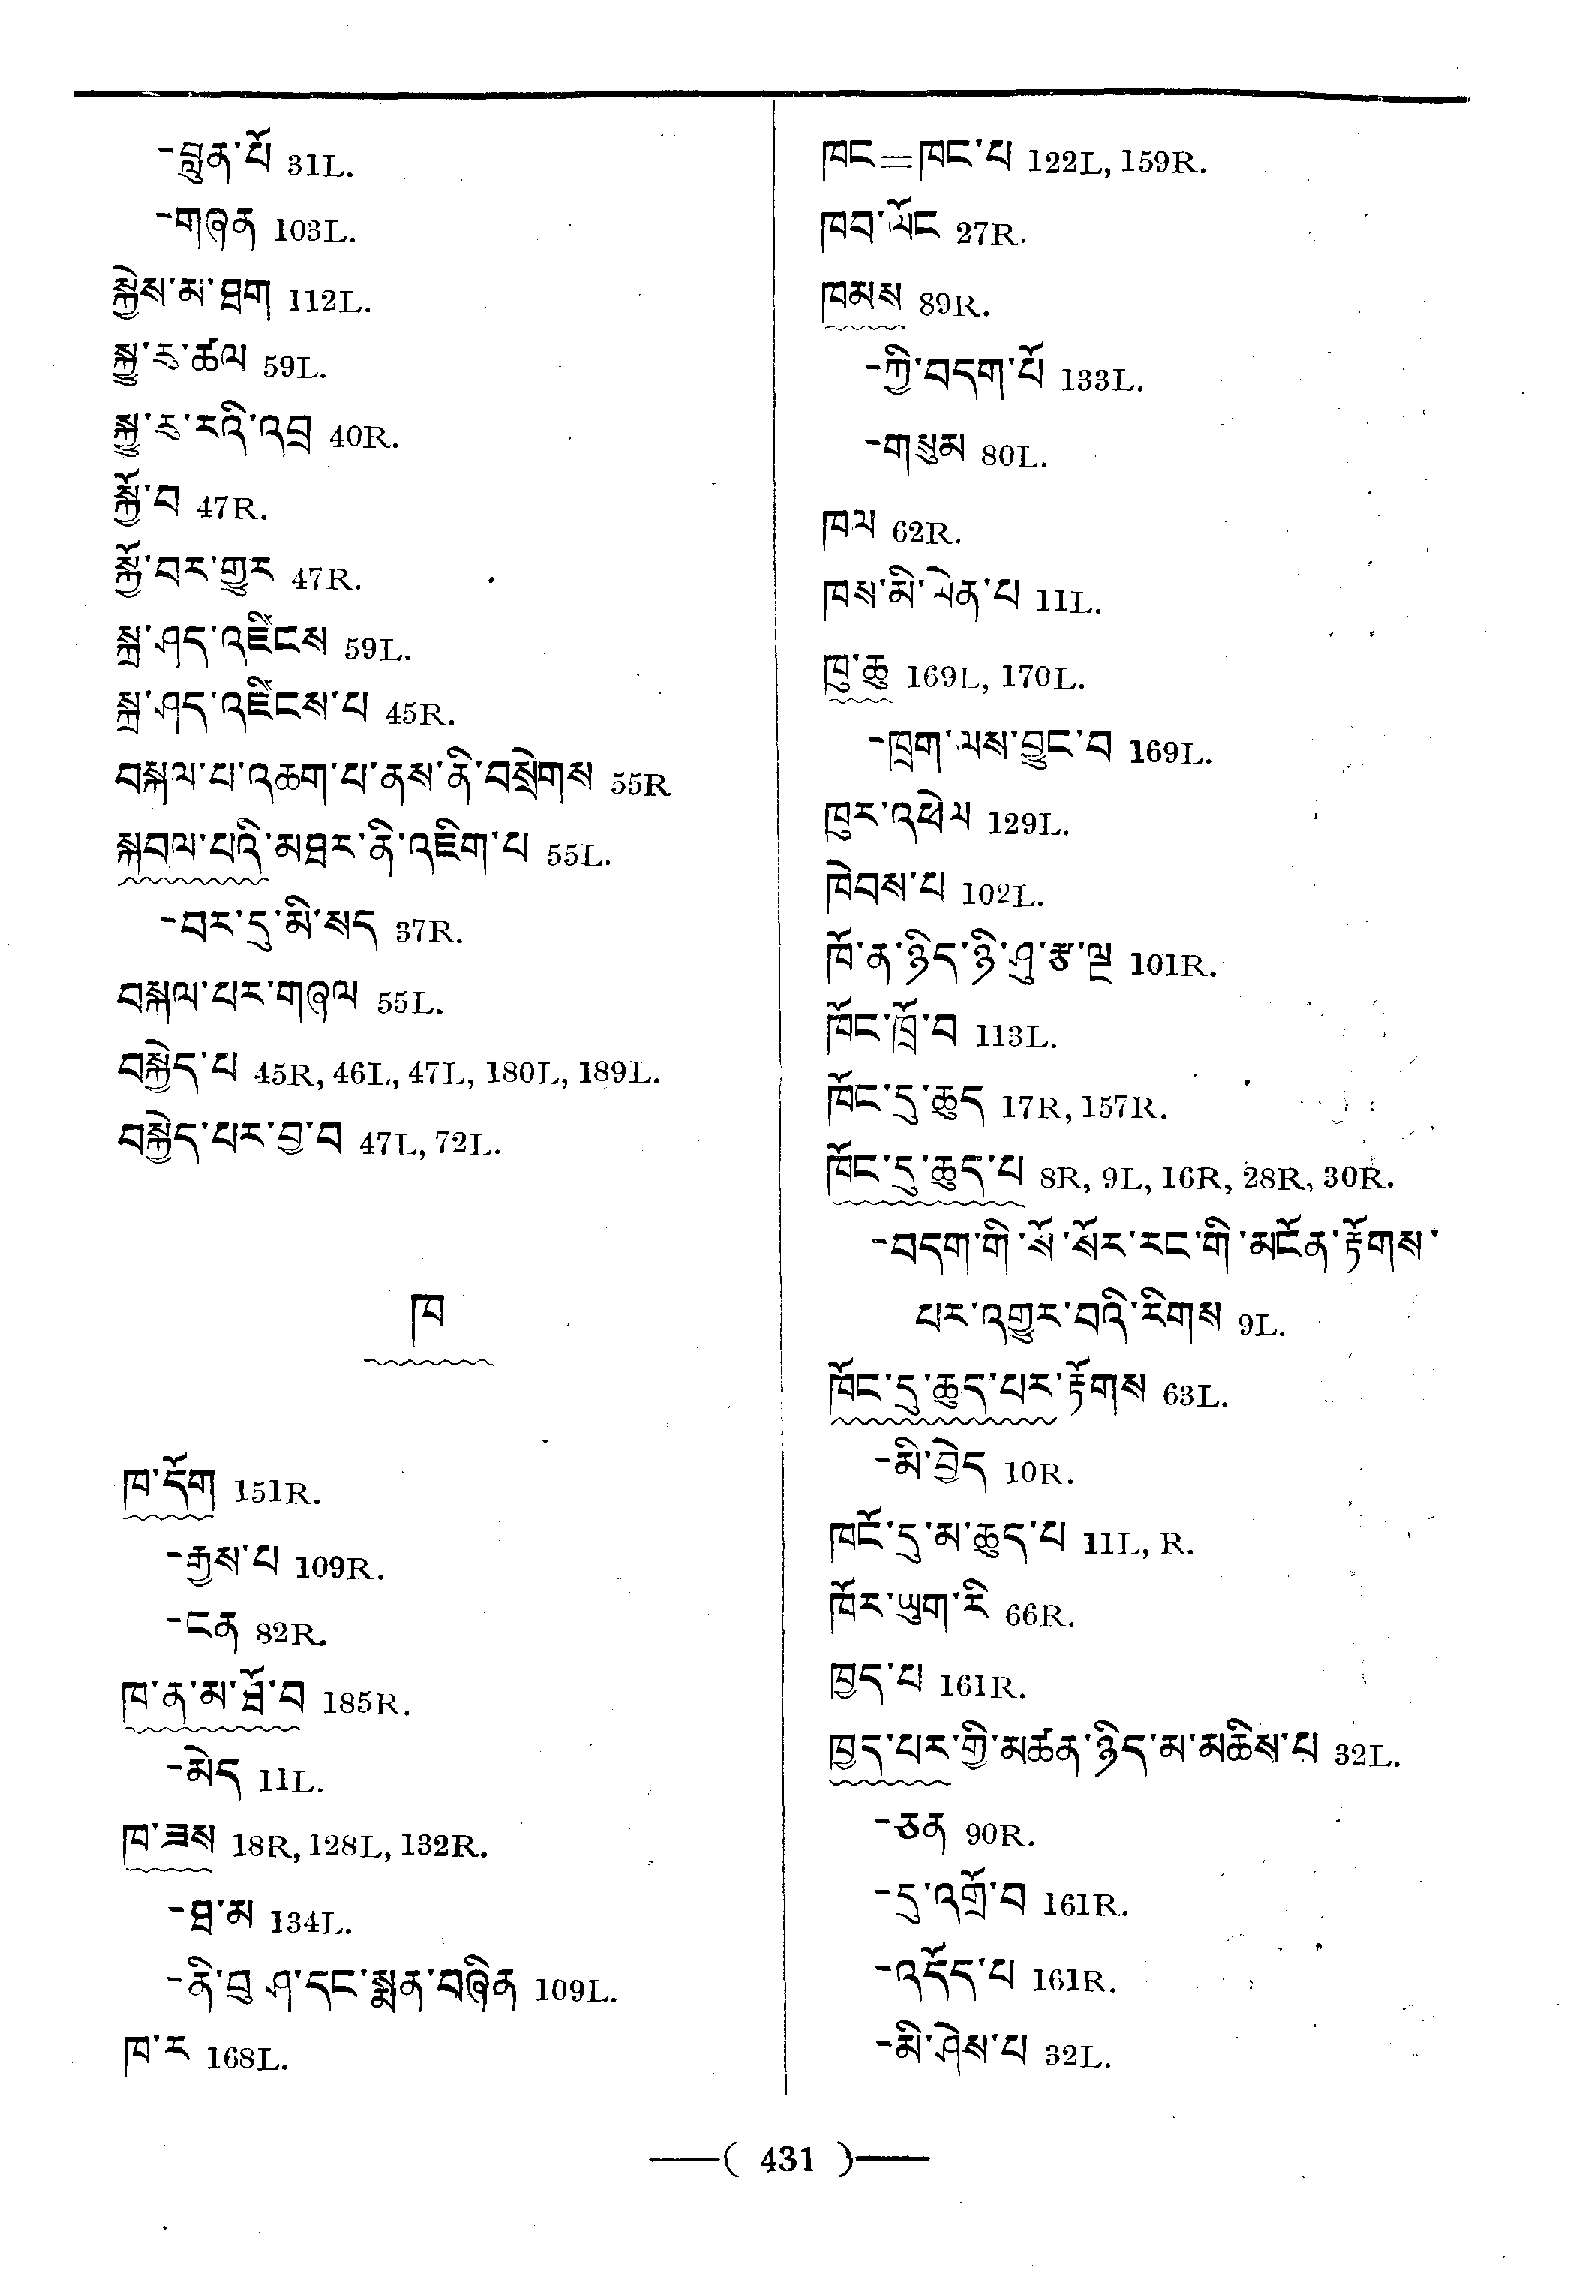 -བླུན་པོ 31L.
-གཞན 103L.
སྐྱེས་མ་ཐག 112L.
སྐྱུ་རུ་ཚལ 59L.
སྐྱུ་རུ་རའི་འབྲ 40R.
སྐྱོ་བ 47R.
སྐྱོ་བར་གྱུར 47R.
སྐྲ་ཤད་འཛིངས 59L.
སྐྲ་ཤད་འཛིངས་པ 45R.
བསྐལ་པ་འཆག་པ་ནས་ནི་བསྲེགས 55R
སྐབལ་པའི་མཐར་ནི་འཇིག་པ 55L.
-བར་དུ་མི་སད 37R.
བསྐལ་པར་གཞལ 55L.
བསྐྱེད་པ 45R, 46L, 47L, 180L, 189L.
བསྐྱེད་པར་བྱ་བ 47L, 72L.
ཁ
ཁ་དོག 151R.
-རྒྱས་པ 109R.
-ངན 82R.
ཁ་ན་མ་ཐོ་བ 185R.
-མེད 11L.
ཁ་ཟས 18R, 128L, 132R.
-ཐ་མ 134L.
-ནི་བུ ཤ་དང་སྨན་བཞིན 109L.
ཁ་ར 168L.
ཁང=ཁང་པ 122L, 159R.
ཁབ་ལོང 27R.
ཁམས 89R.
-ཀྱི་བདག་པོ 133L.
-གསུམ 80L.
ཁལ 62R.
ཁས་མི་ལེན་པ 11L.
ཁུ་ཆུ 169L, 170L.
-ཁྲག་ལས་བྱུང་བ 169L.
ཁུར་འཕེལ 129L.
ཁེབས་པ 102L.
ཁོ་ན་ཉིད་ཉི་ཤུ་རྩ་ལྔ 101R.
ཁོང་ཁྲོ་བ 113L.
ཁོང་དུ་ཆུད 17R, 157R.
ཁོང་དུ་ཆུད་པ 8R, 9L, 16R, 28R, 30R.
-བདག་གི་སོ་སོར་རང་གི་མངོན་རྟོགས་
པར་འགྱུར་བའི་རིགས 9L.
ཁོང་དུ་ཆུད་པར་རྟོགས 63L.
-མི་བྱེད 10R.
ཁངོ་དུ་མ་ཆུད་པ 11L, R.
ཁོར་ཡུག་རི 66R.
ཁྱད་པ 161R.
ཁྱད་པར་གྱི་མཚན་ཉིད་མ་མཆིས་པ 32L.
-ཅན 90R.
-དུ་འགྲོ་བ 161R.
-འདོད་པ 161R.
-མི་ཤེས་པ 32L.
( 431 )